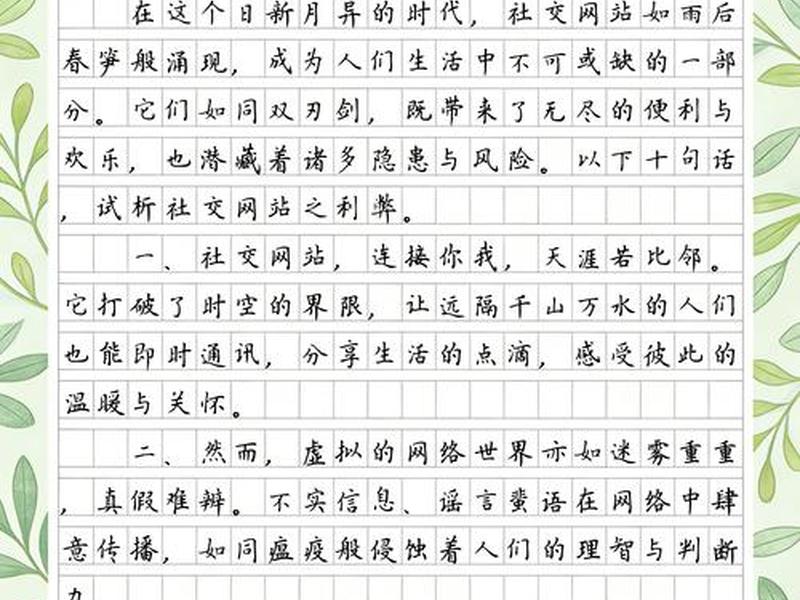 在这个日新月异的时代，社交网站如雨后
春笋般涌现，成为人们生活中不可或缺的一部
分。它们如同双刃剑，既带来了无尽的便利与
欢乐，也潜藏着诸多隐患与风险。以下十句话
，试析社交网站之利弊。
一、社交网站，连接你我，天涯若比邻。
它打破了时空的界限，让远隔千山万水的人们
也能即时通讯，分享生活的点滴，感受彼此的
温暖与关怀。
二、然而，虚拟的网络世界亦如迷雾重重
，真假难辨。不实信息、谣言蜚语在网络中肆
意传播，如同瘟疫般侵蚀着人们的理智与判断